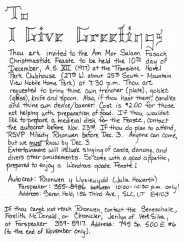 To
I Give Greetings
Thou art invited to the Am Mor Salann Fasach
Christmastide Feaste, to be held the 10th day of
December, A.S. XII (1977) at the Transtate Motel
Park Clubhouse (279 W. about 257 South - Mountain
View Mobile Home Park) at 7:30 p.m. Thou art
requested to bring thine own trencher (plate), goblet
(glass), knife and spoon. Also, if thou hast them, candles
and thine own device/banner. Cost is $2.00 for those
not helping with preparation of food. If thou wouldst
like to prepare a medieval dish for the Feaste, contact
the autocrat before Nov. 23rd. If thou do plan to attend,
RSVP Milady Rhonwen before Dec. 3. Anyone can come,
but we must know by Dec. 3
Entertainment will include singing of carols, dancing, and
divers other amusements. So come with a good appetite;
prepared to enjoy a wondrous goode Feaste!
Autocrat: Rhonwen y Llysieuydd (Julie Howard)
Farspeaker: 355-8986 between 10:00 - 10:30 p.m. only!
Address: Baron Hold, 136 Third Ave., SLC, UT 84103
If thou cannot reach Rhonwen, contact the Seneschale,
Faolith McDonald, or Chronicler, Jenilyn of Vert Silva,
at Farspeaker: 359-8917 Address: 749 So. 500 E. #6
(to the end of November only).